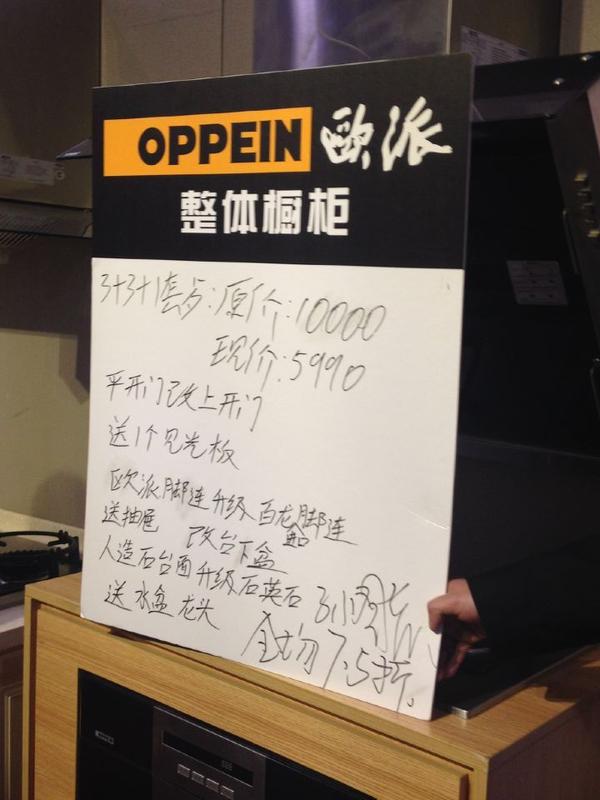 OPPEIN 欧派
整体橱柜
3+3+1套餐:原价:10000
现价:5990
平开门改上开门
送1个见光板
欧派脚链升级百龙脚链
送抽屉 改台下盆
人造石台面升级石英石
送水盆 龙头
全场7.5折
OPPEIN